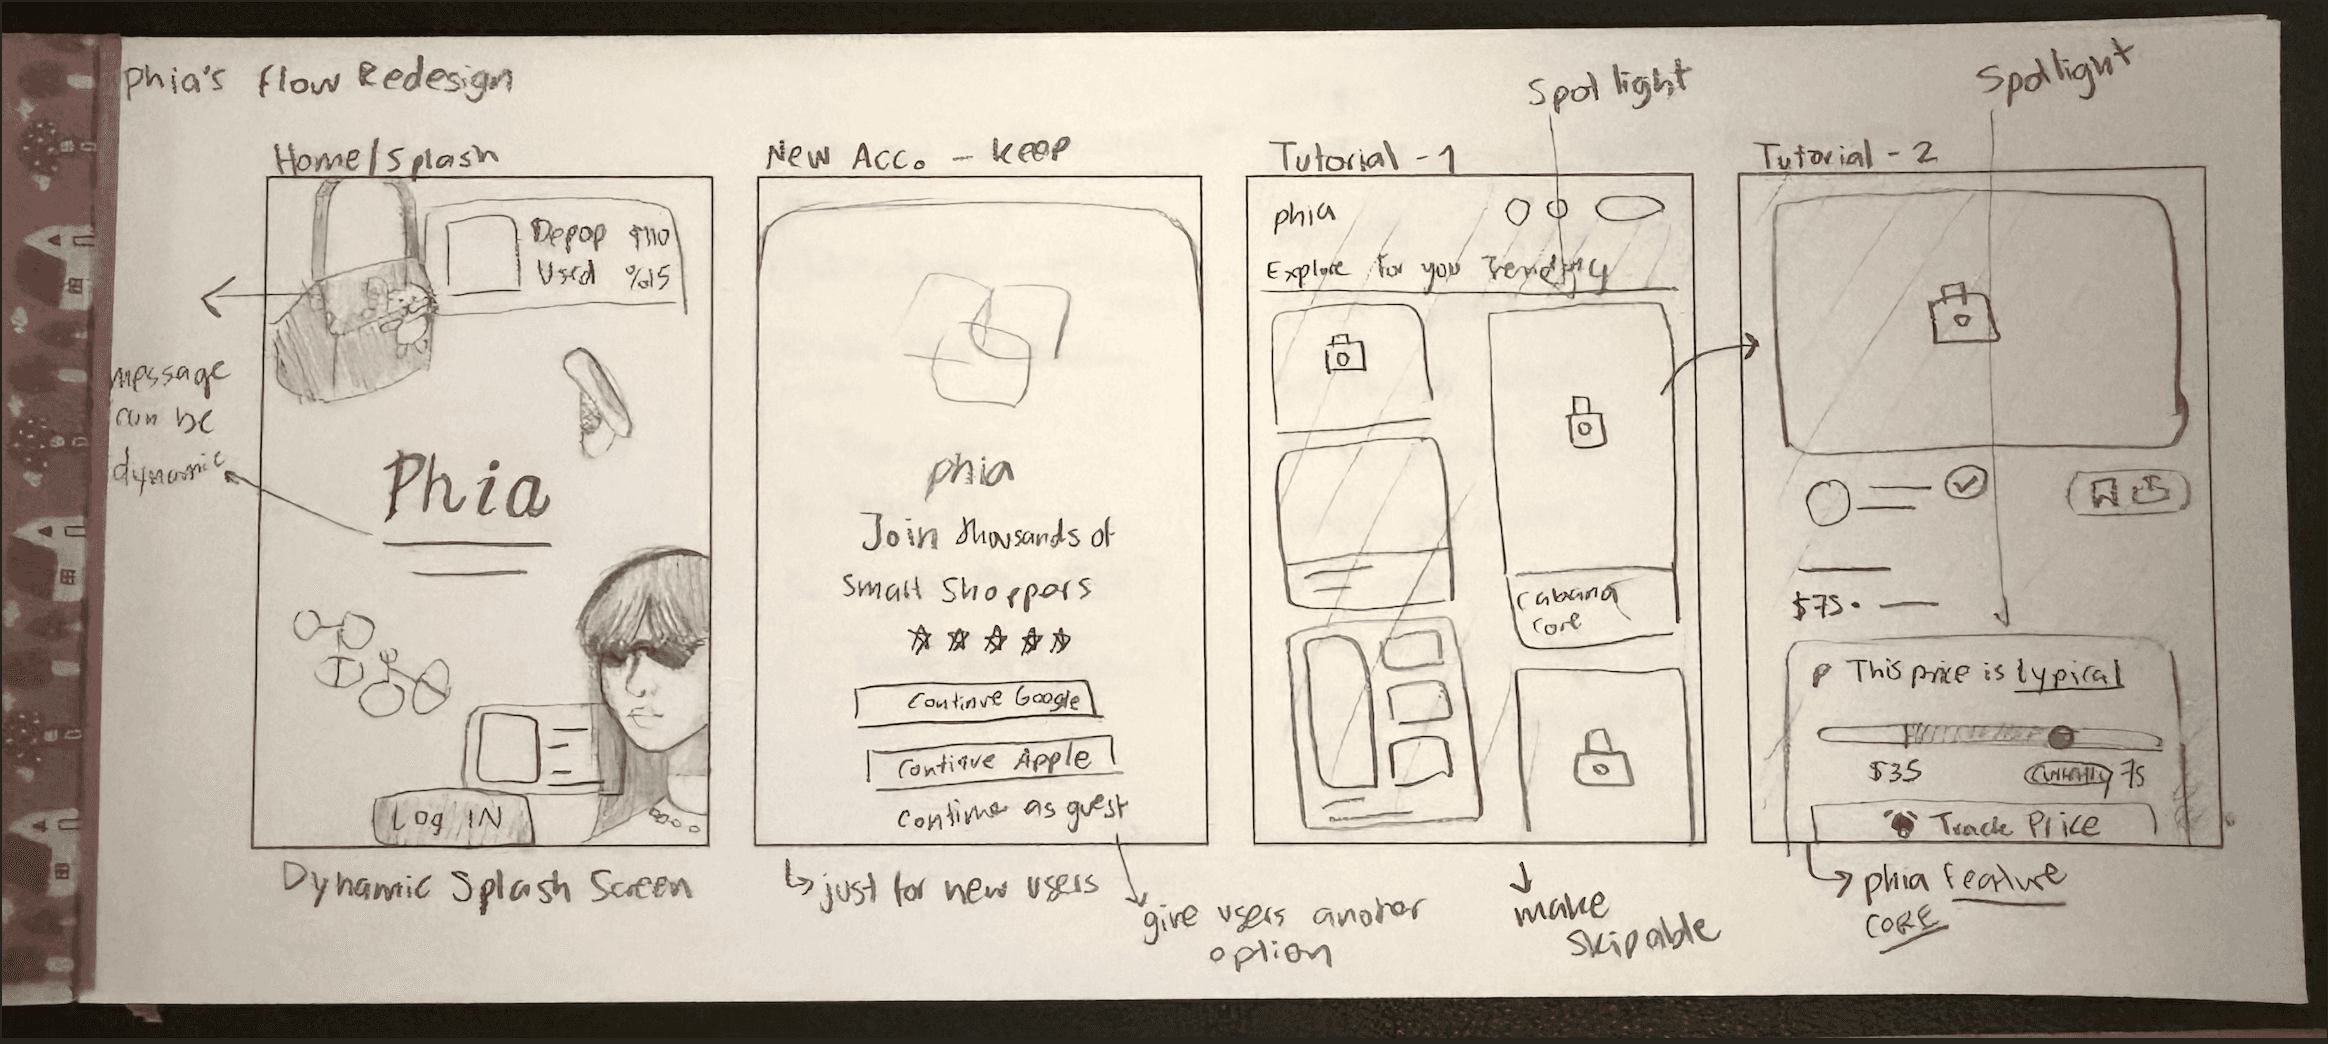 phia's flow Redesign
Spotlight
Spotlight
Home/Splash
Depop $110
Used %15
message
can be
dynamic
Phia
Log IN
Dynamic Splash Screen
New Acc. - keep
phia
Join thousands of
Smart Shoppers
Continue Google
Continue Apple
continue as guest
just for new users
give users another
option
Tutorial - 1
phia
Explore for you Trending
Cabana
core
make
skipable
Tutorial - 2
$75
This price is typical
$35
currently 75
Track Price
phia feature
CORE